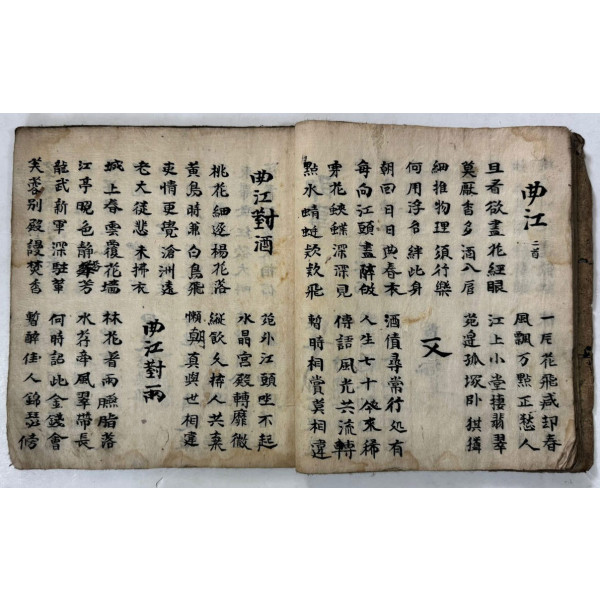 曲江 二首
一片花飛减却春
風飄万點正愁人
且看欲盡花經眼
莫厭香多酒入唇
江上小堂棲翡翠
苑邊孤塚卧猉獜
細推物理須行樂
何用浮名絆此身
又
朝回日日典春衣
酒債尋常行処有
每向江頭盡醉皈
人生七十從來稀
穿花蛺蝶深深見
傳語風光共流轉
點水蜻蜓欵欵飛
暫時相賞莫相違
曲江對酒
苑外江頭坐不起
水晶宮殿轉靡微
桃花細逐楊花落
黄鳥時兼白鳥飛
縱飲久拚人共棄
懶朝真與世相違
吏情更覺滄洲遠
老大徒悲未拂衣
曲江對雨
城上春雲覆花墻
江亭晚色静年芳
林花着雨臙脂落
水荇牽風翠帶長
龍武新軍深駐輦
芙蓉別殿謾焚香
何時詔此金錢會
暫醉佳人錦瑟傍